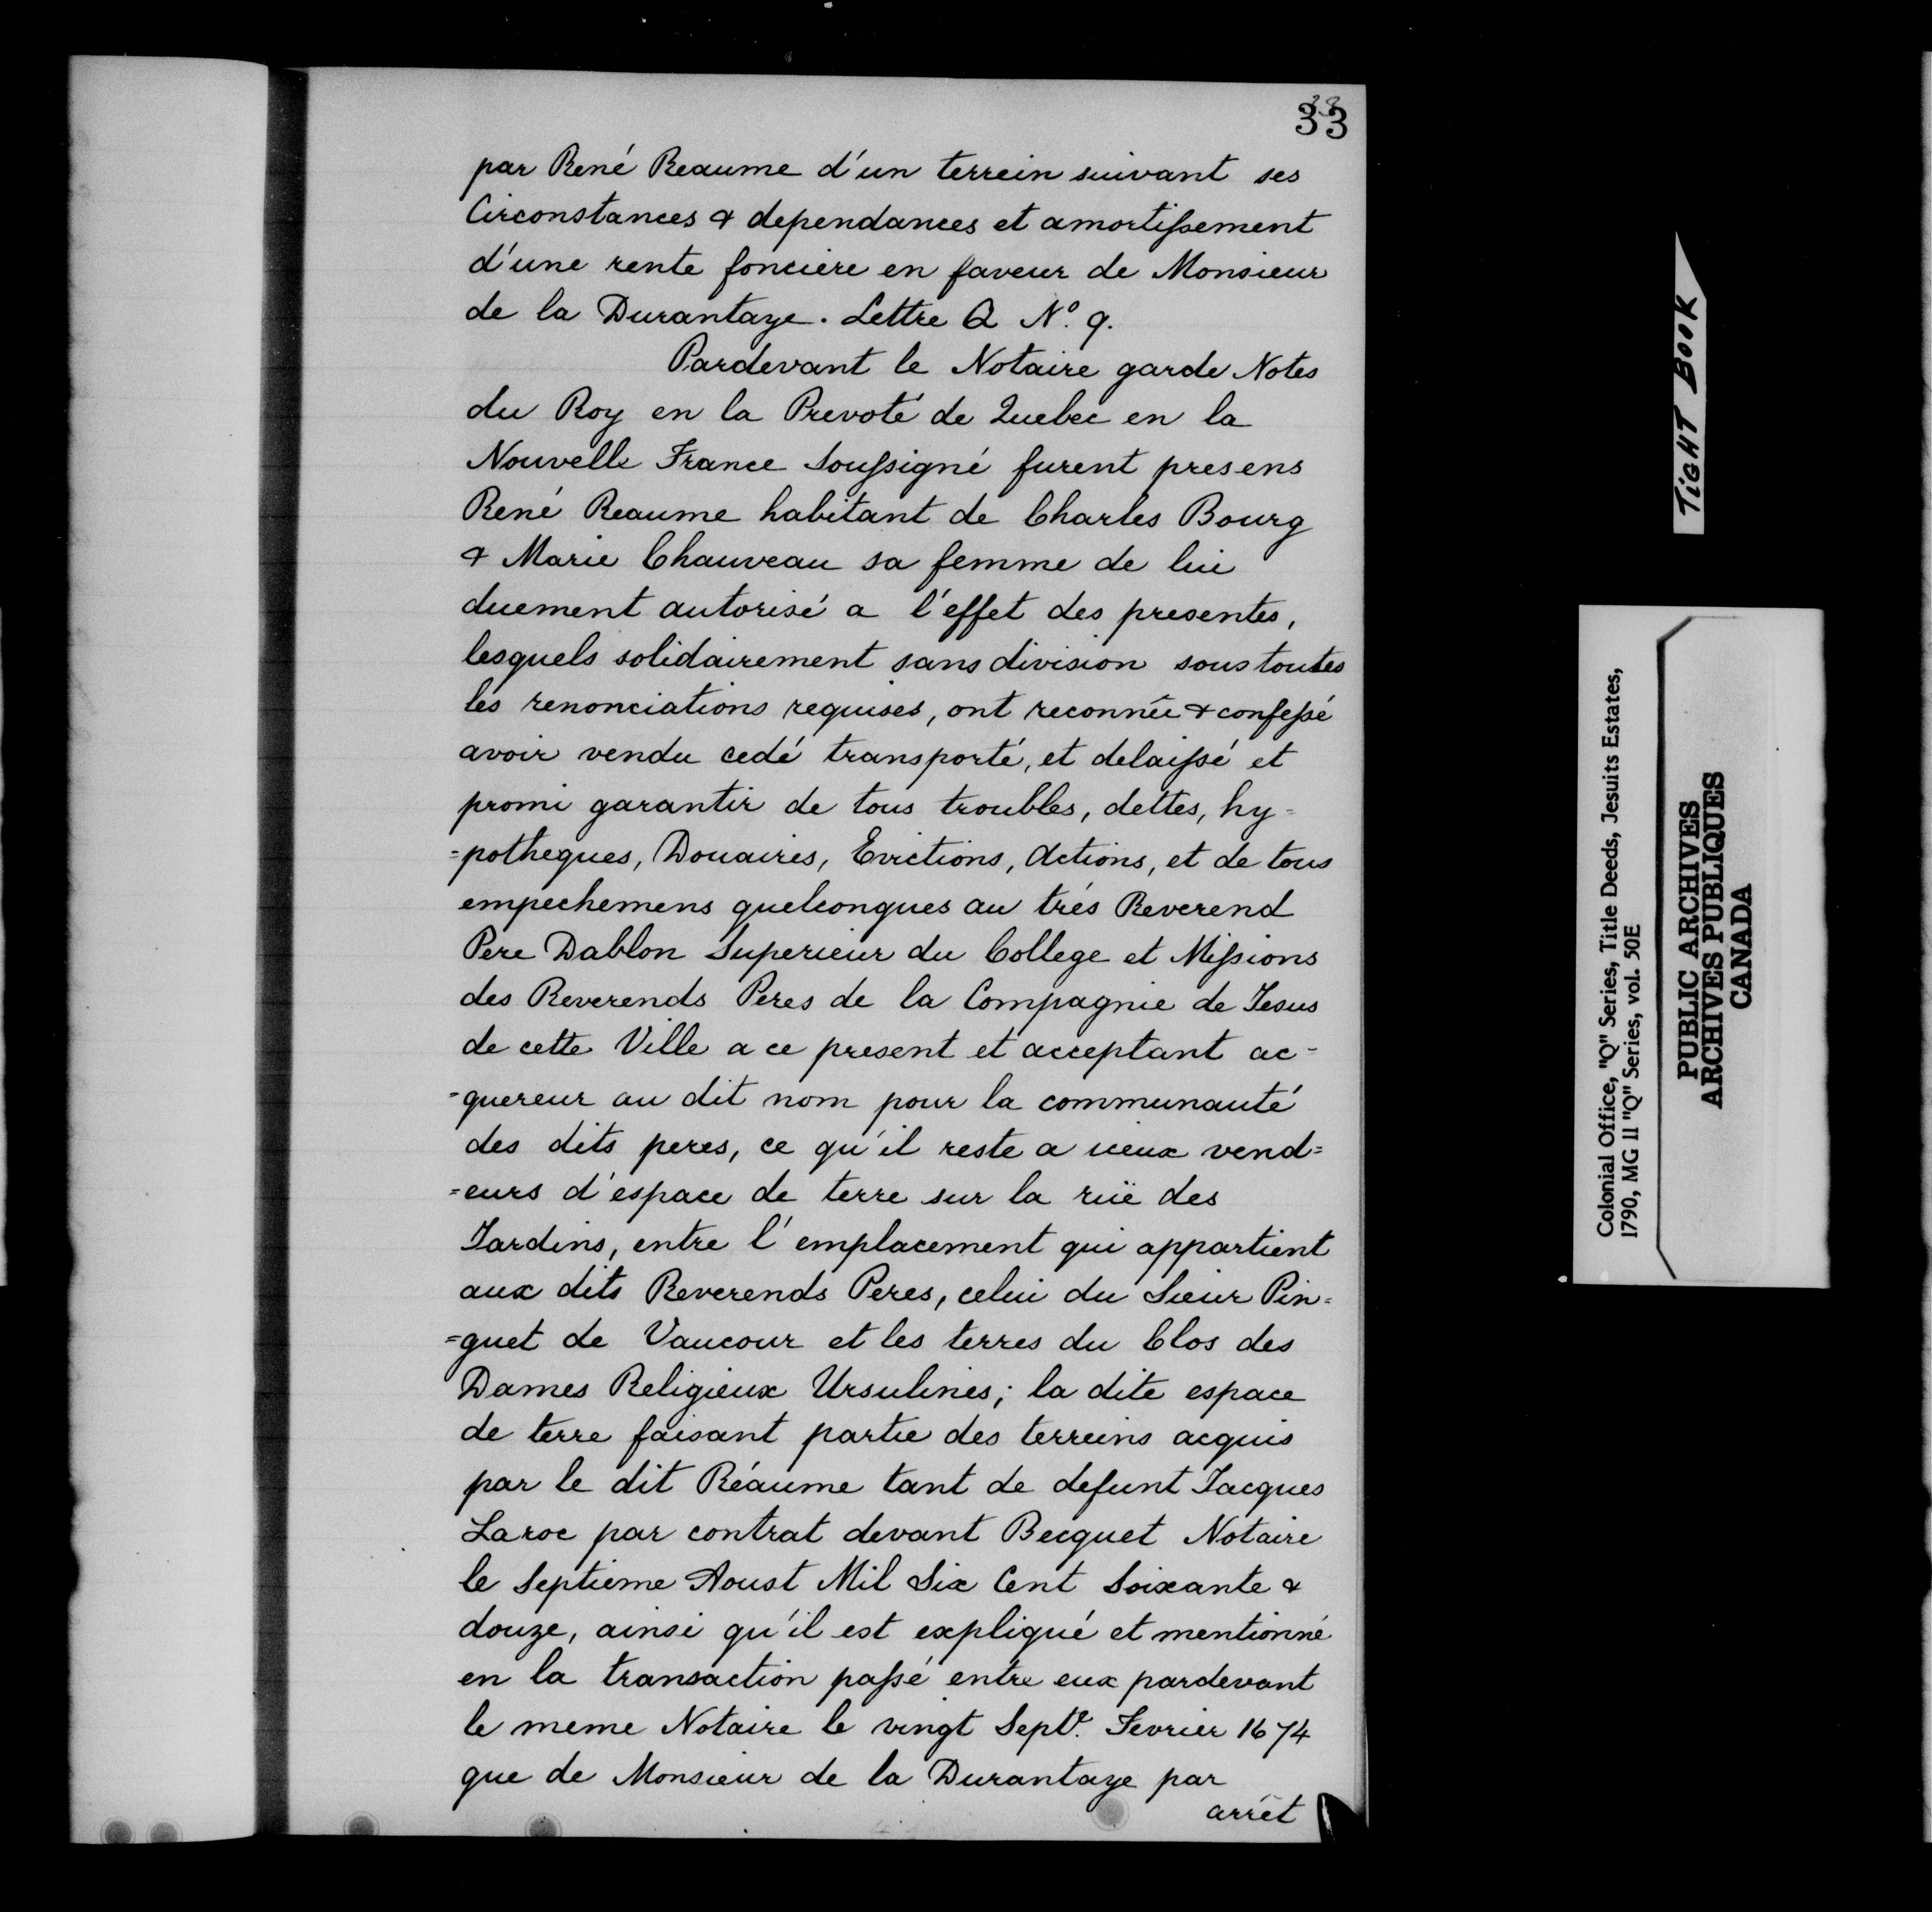 33
33
par René Reaume d'un terrein suivant ses
Circonstances & dependances et amortissement
d'une rente fonciere en faveur de Monsieur
de la Durantaye. Lettre Q Nº. 9.
Pardevant le Notaire garde Notes
du Roy en la Prevoté de Quebec en la
Nouvelle France Soussigné furent presens
René Reaume habitant de Charles Bourg
& Marie Chauveau sa femme de lui
duement autorisé a l'effet des presentes,
lesquels solidairement sans division sous toutes
les renonciations requises, ont reconnû & confessé
avoir vendu cedé transporté, et delaissé et
promi garantir de tous troubles, dettes, hy=
=potheques, Douaires, Evictions, Actions, et de tous
empechemens quelconques au trés Reverend
Pere Dablon Superieur du College et Missions
des Reverends Peres de la Compagnie de Jesus
de cette Ville a ce present et acceptant ac=
=quereur au dit nom pour la communauté
des dits peres, ce qu'il reste a iceux vend=
=eurs d'espace de terre sur la ruë des
Jardins, entre l'emplacement qui appartient
aux dits Reverends Peres, celui du Sieur Pin=
=guet de Vaucour et les terres du Clos des
Dames Religieux Ursulines; la dite espace
de terre faisant partie des terreins acquis
par le dit Réaume tant de defunt Jacques
Laroc par contrat devant Becquet Notaire
le Septieme Aoust Mil Six Cent Soixante &
douze, ainsi qu'il est expliqué et mentionné
en la transaction passé entre eux pardevant
le meme Notaire le vingt Septe. Fevrier 1674
que de Monsieur de la Durantaye par
arrêt
TIGHT BOOK
Colonial Office, "Q" Series, Title Deeds, Jesuits Estates,
1790, MG 11 "Q" Series, vol. 50E
PUBLIC ARCHIVES
ARCHIVES PUBLIQUES
CANADA